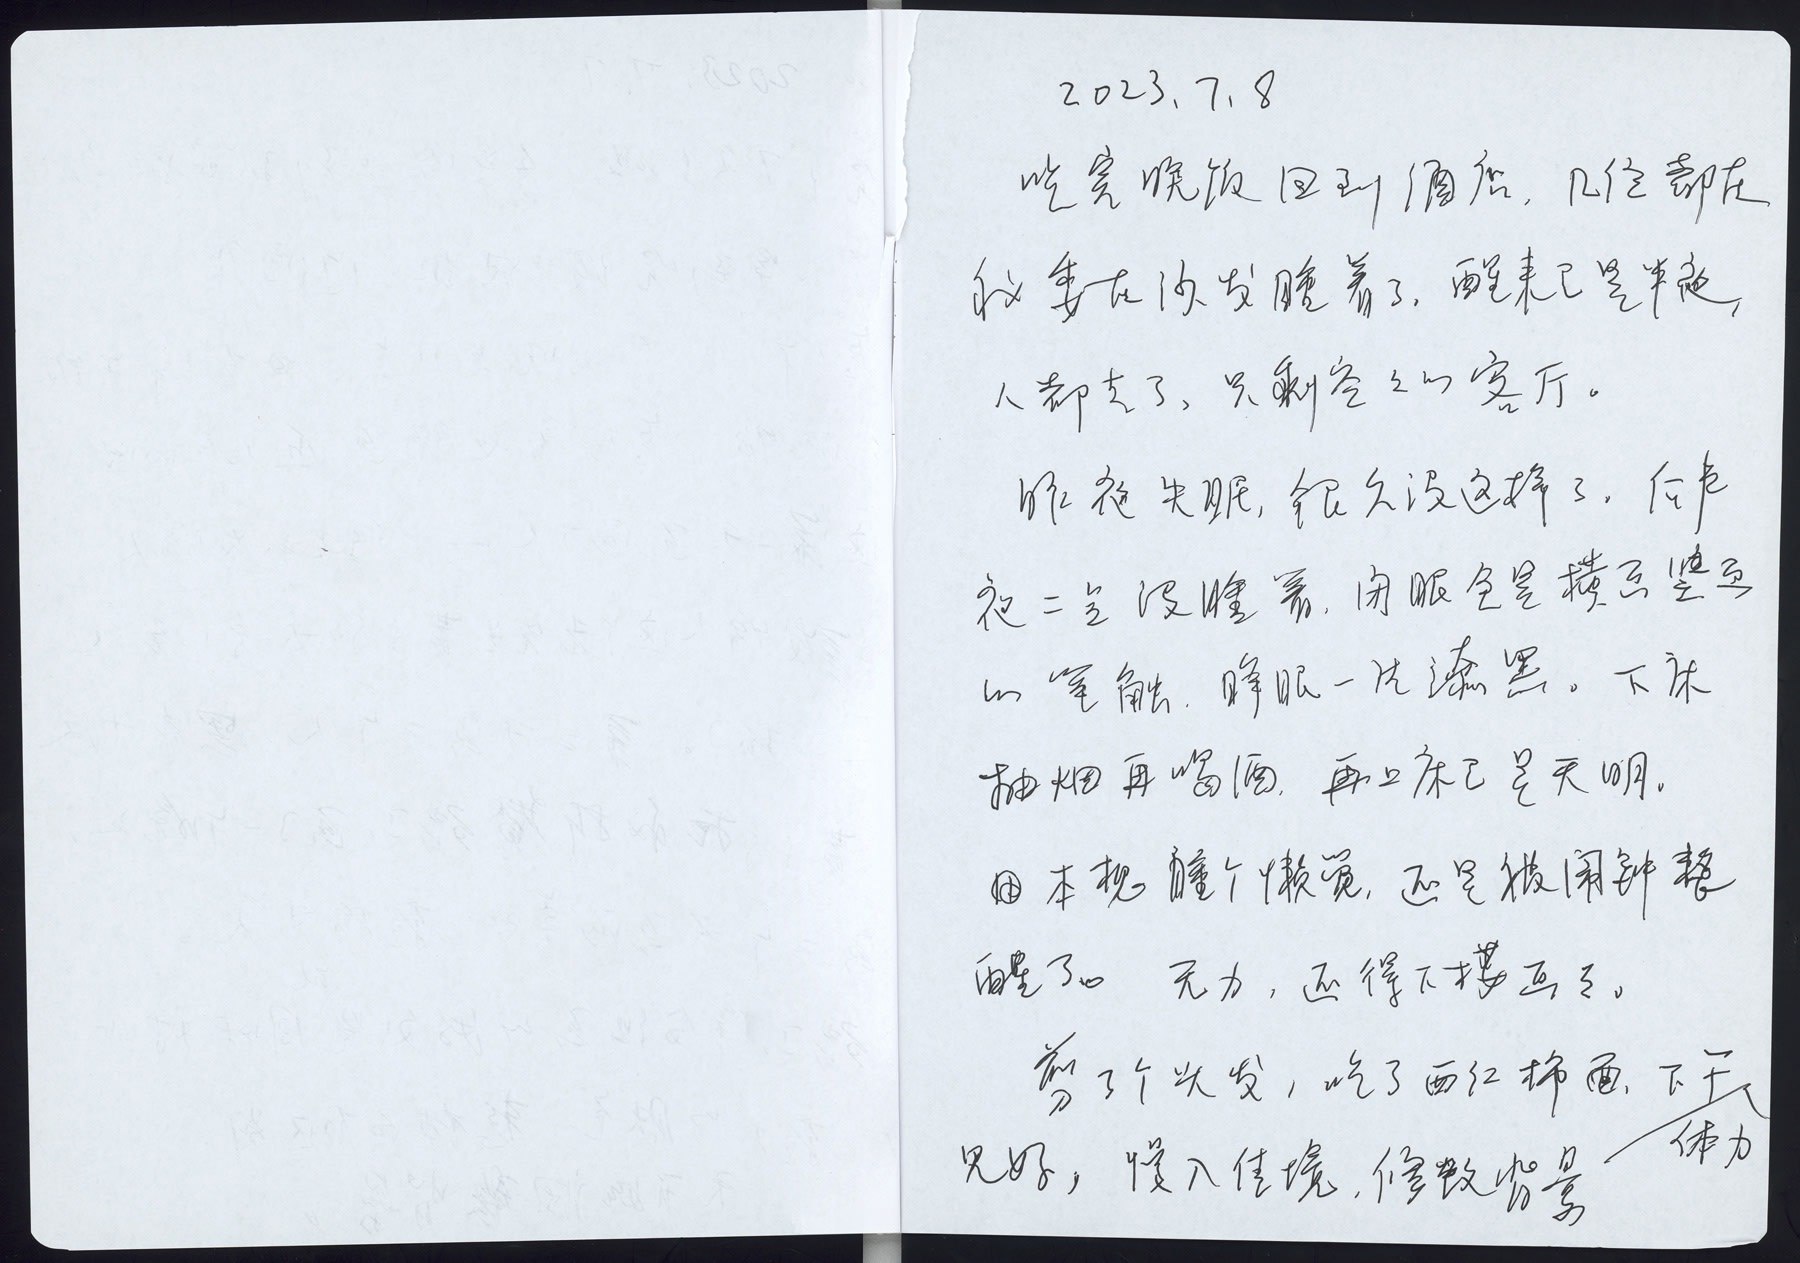 2023.7.8
吃完晚饭回到酒店，几位都在
我靠在沙发睡着了，醒来已是半夜，
人都走了，只剩空空的客厅。
昨夜失眠，很久没这样了。
夜二点没睡着，闭眼全是横画竖画
的笔触，睁眼一片漆黑。下床
抽烟再喝酒，再上床已是天明。
本想睡个懒觉，还是被闹钟整
醒了。 无力，还得下楼画画。
剪了个头发，吃了西红柿面，下午
体力
见好，慢入佳境，修整背景